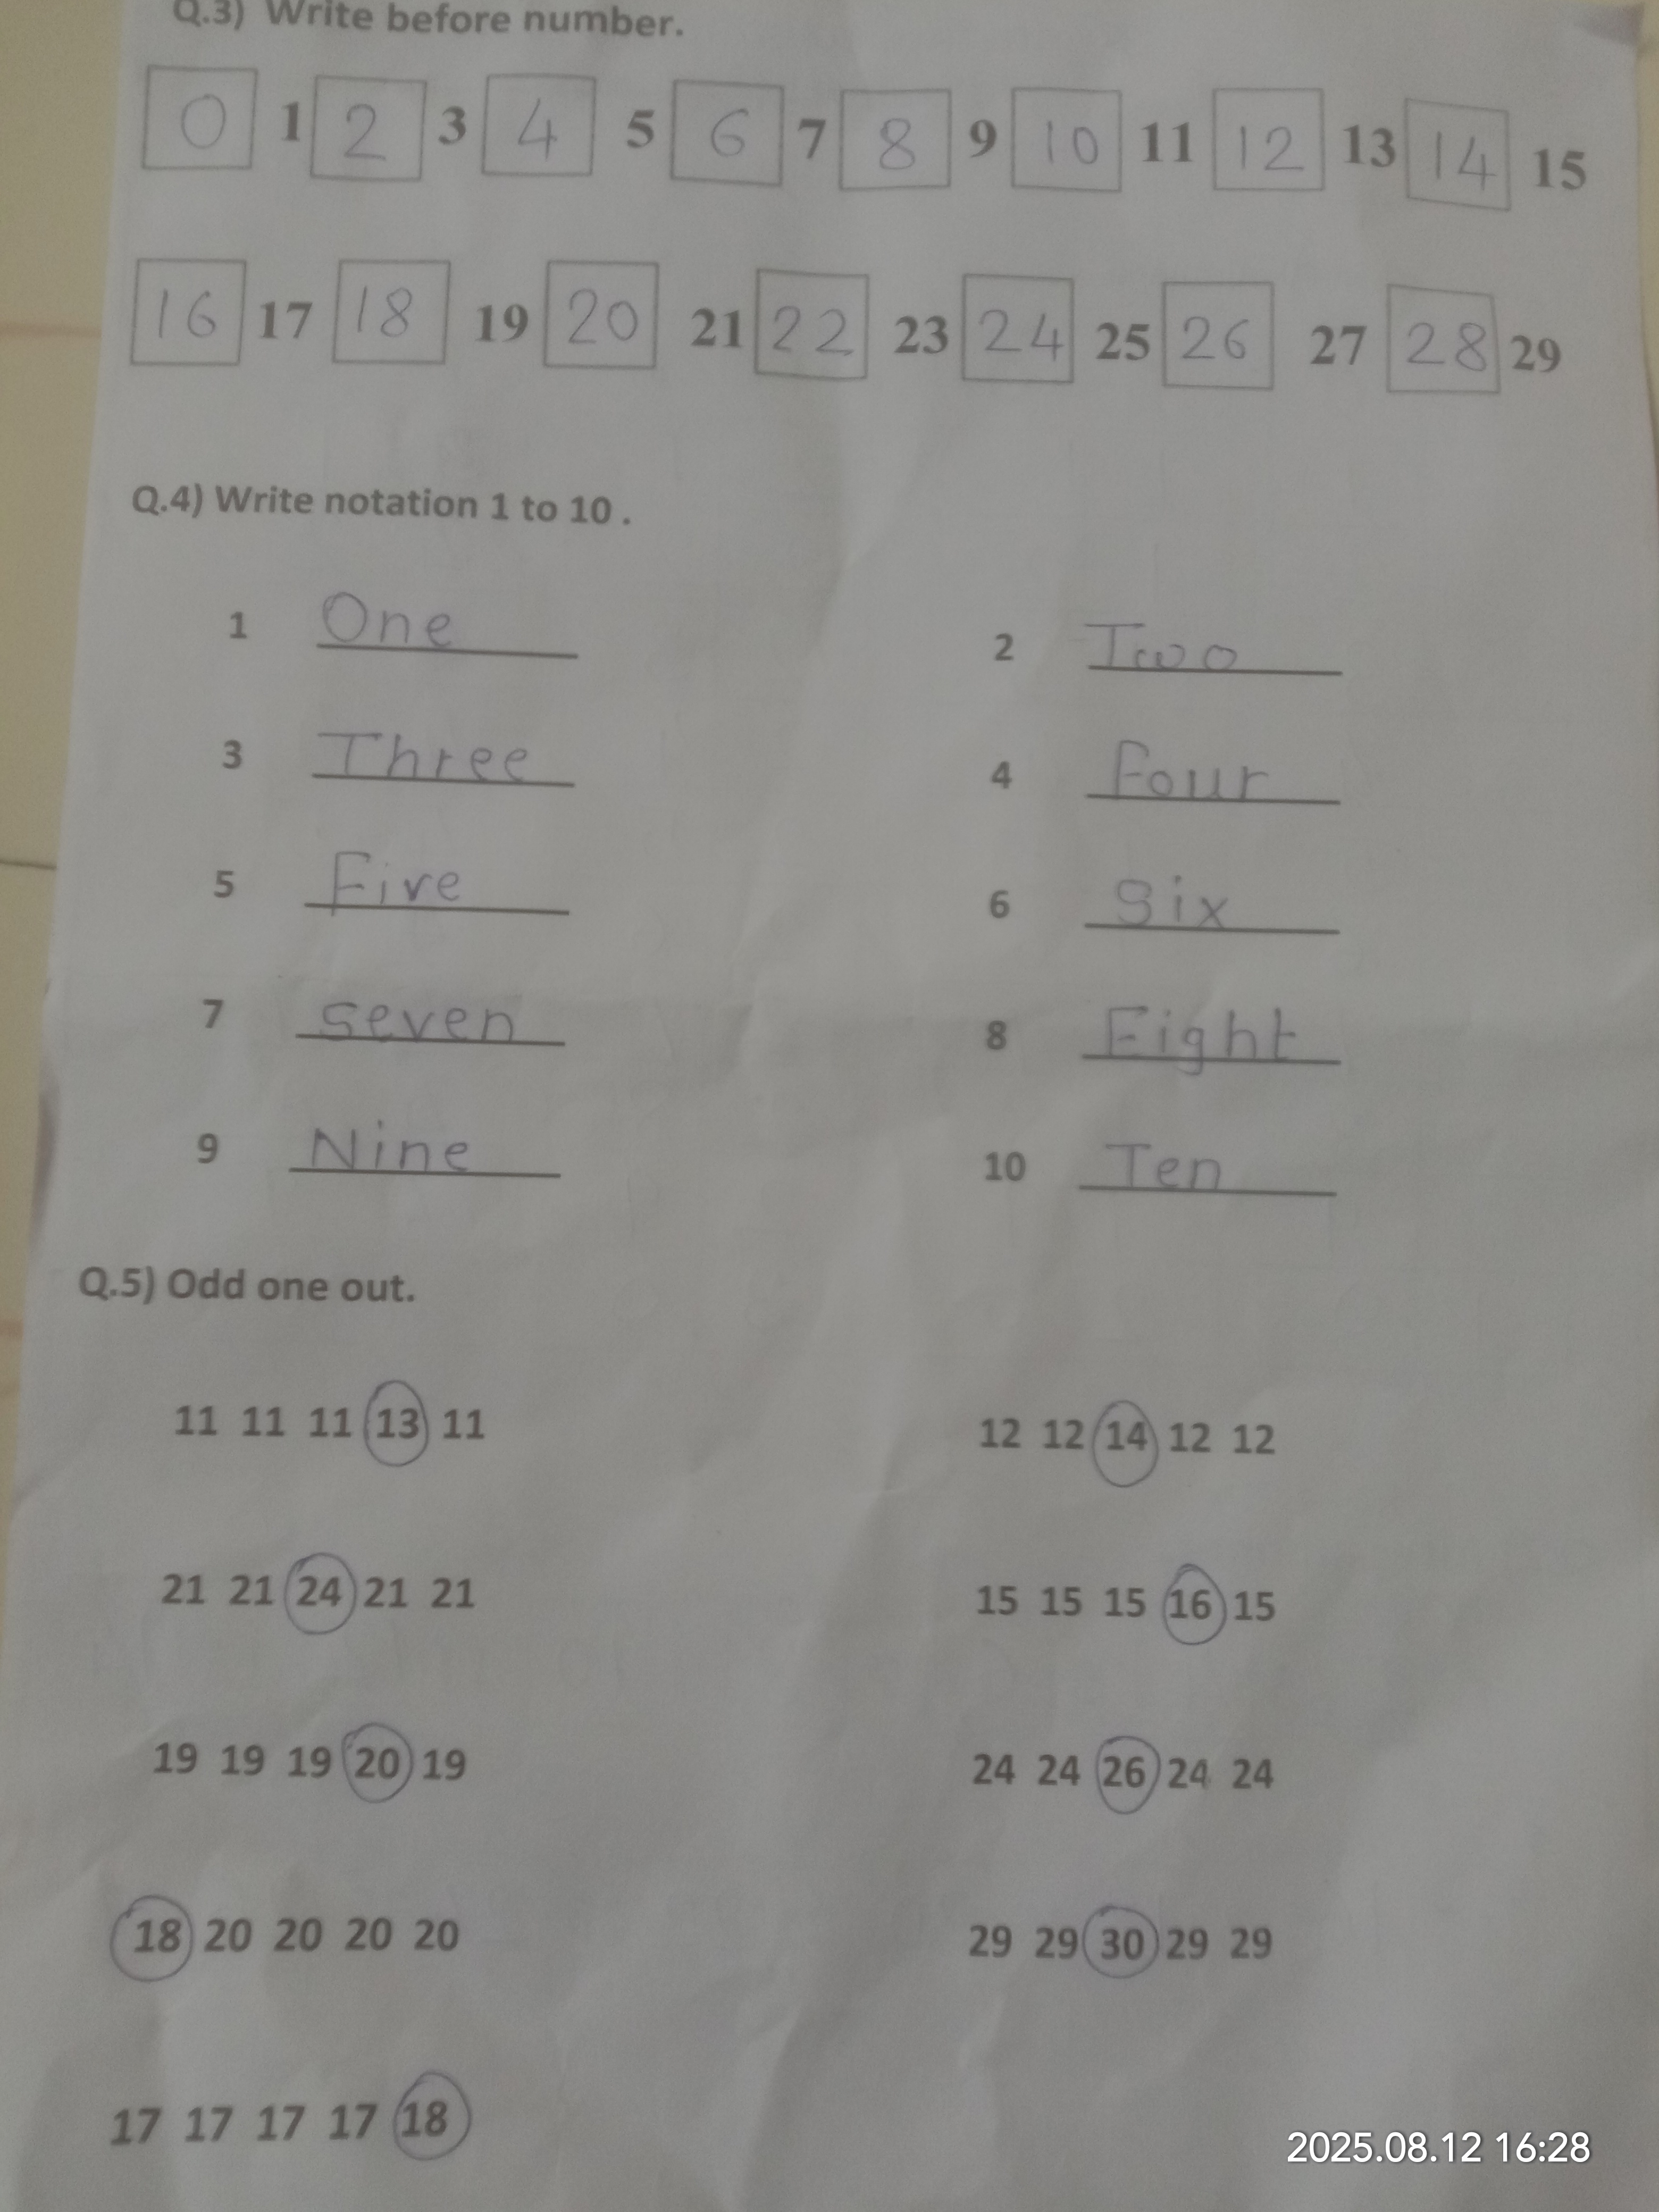 Q.3) Write before number.
0 1 2 3 4 5 6 7 8 9 10 11 12 13 14 15
16 17 18 19 20 21 22 23 24 25 26 27 28 29
Q.4) Write notation 1 to 10 .
1 One 2 Two
3 Three 4 Four
5 Five 6 Six
7 seven 8 Eight
9 Nine 10 Ten
Q.5) Odd one out.
11 11 11 13 11 12 12 14 12 12
21 21 24 21 21 15 15 15 16 15
19 19 19 20 19 24 24 26 24 24
18 20 20 20 20 29 29 30 29 29
17 17 17 17 18
2025.08.12 16:28